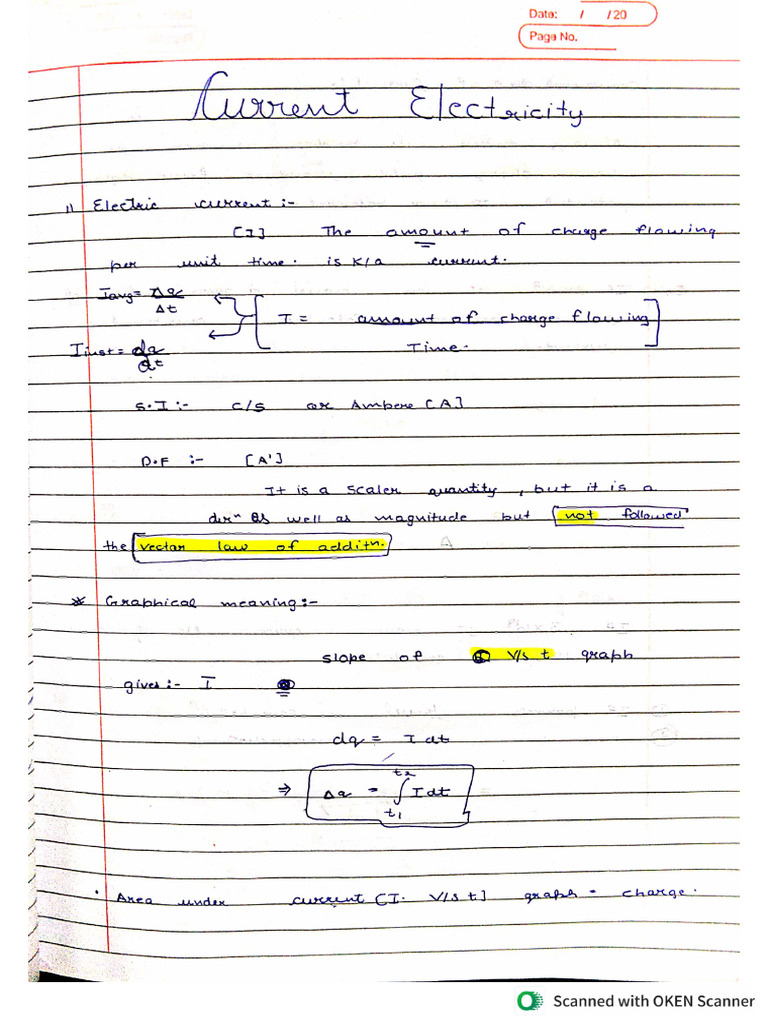 Date: / /20
Page No.
Current Electricity
1) Electric current :-
[I] The amount of charge flowing
per unit time. is k/a current.
Iavg = Δq/Δt
I = amount of charge flowing
Time.
Iinst = dq/dt
S.I :- C/s or Ampere [A]
D.F :- [A']
It is a scaler quantity, but it is a
dirⁿ as well as magnitude but not followed
the vector law of additⁿ.
* Graphical meaning :-
slope of Q V/s t graph
gives :- I
dq = I dt
⇒ Δq = ∫ t₁ t₂ I dt
• Area under current [I. V/s t] graph = charge.
Scanned with OKEN Scanner